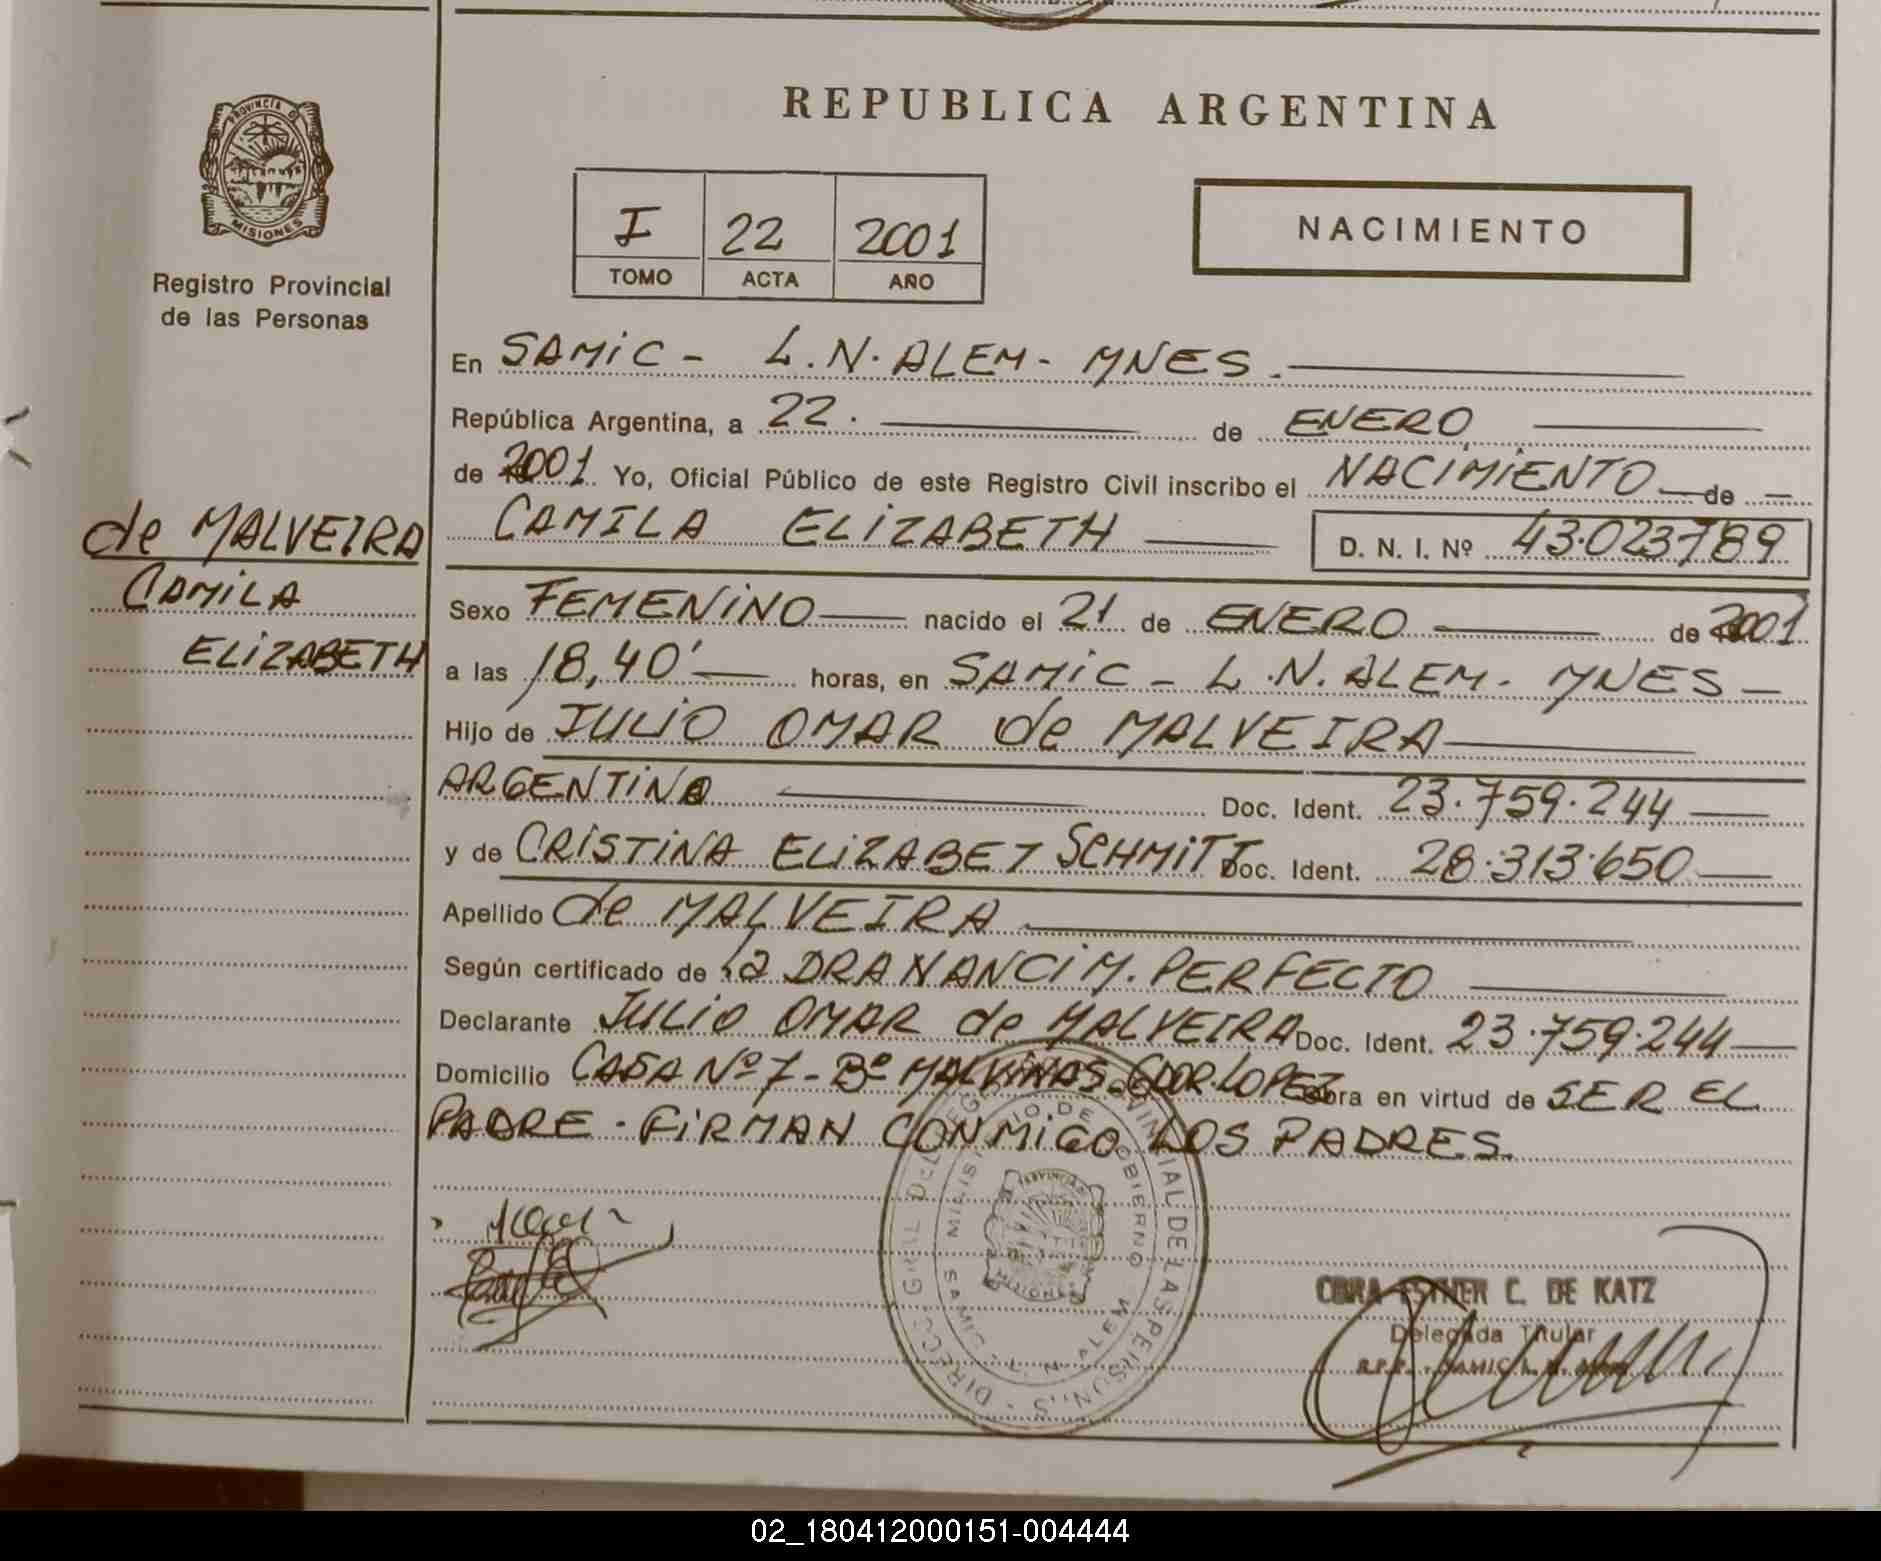 REPUBLICA ARGENTINA
PROVINCIA DE
MISIONES
Registro Provincial
de las Personas
I 22 2001
TOMO ACTA AÑO
NACIMIENTO
En SAMIC - L.N. ALEM - MNES.
República Argentina, a 22. de ENERO
de 2001 Yo, Oficial Público de este Registro Civil inscribo el NACIMIENTO de
CAMILA ELIZABETH D. N. I. Nº 43.023.789
de MALVEIRA
CAMILA
ELIZABETH
Sexo FEMENINO nacido el 21 de ENERO de 2001
a las 18,40' horas, en SAMIC - L.N. ALEM - MNES -
Hijo de JULIO OMAR de MALVEIRA
ARGENTINO Doc. Ident. 23.759.244
y de CRISTINA ELIZABET SCHMITT Doc. Ident. 28.313.650
Apellido de MALVEIRA
Según certificado de la DRA NANCI M. PERFECTO
Declarante JULIO OMAR de MALVEIRA Doc. Ident. 23.759.244
Domicilio CASA Nº 7 - Bº MALVINAS - GDOR. LOPEZ Obra en virtud de SER EL
PADRE. FIRMAN CONMIGO LOS PADRES.
MINISTERIO DE GOBIERNO
SAMIC - L. N. ALEM
MISIONES
ESTHER C. DE KATZ
Delegada Titular
R.P.P. - SAMIC L. N. Alem
02_180412000151-004444